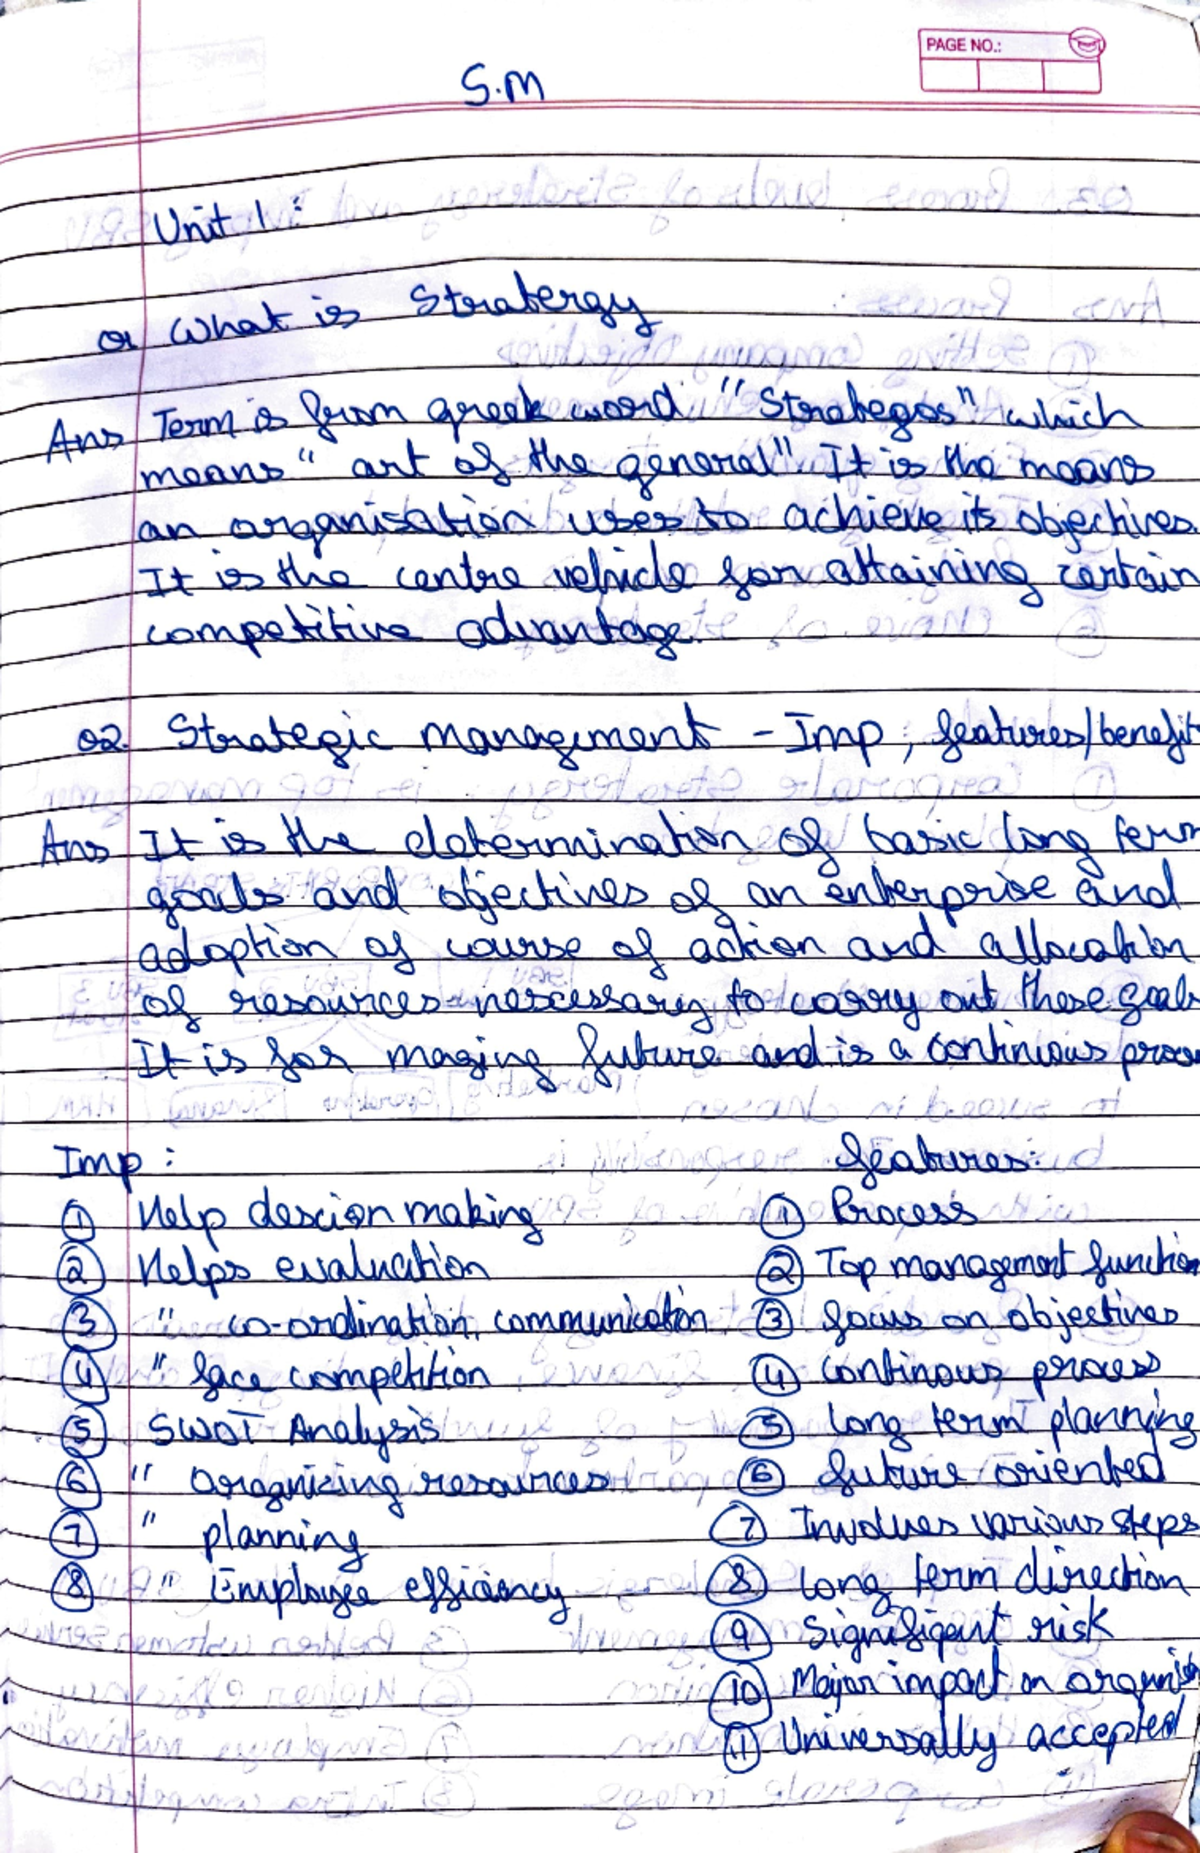 PAGE NO.:
S.M
Unit 1 :
Q1 What is Stratergy
Ans Term is from greek word "Strategos" which
means "art of the general". It is the means
an organisation uses to achieve its objectives
It is the centre vehicle for attaining certain
competitive advantage.
Q2. Strategic management - Imp, features/benefit
Ans It is the determination of basic long term
goals and objectives of an enterprise and
adoption of course of action and allocation
of resources nescessary to carry out these goals
It is for making future and is a continious
Imp :
① Help descion making
② Helps evaluation
③ " co-ordination, communication
④ " face competition
⑤ SWOT Analysis
⑥ " organizing resources
⑦ " planning
⑧ " Employee efficiency
features:
① Process
② Top management function
③ focus on objectives
④ continous process
⑤ long term planning
⑥ future oriented
⑦ Involves various steps
⑧ long term direction
⑨ Signifigent risk
⑩ Major impact on
⑪ Universally accepted